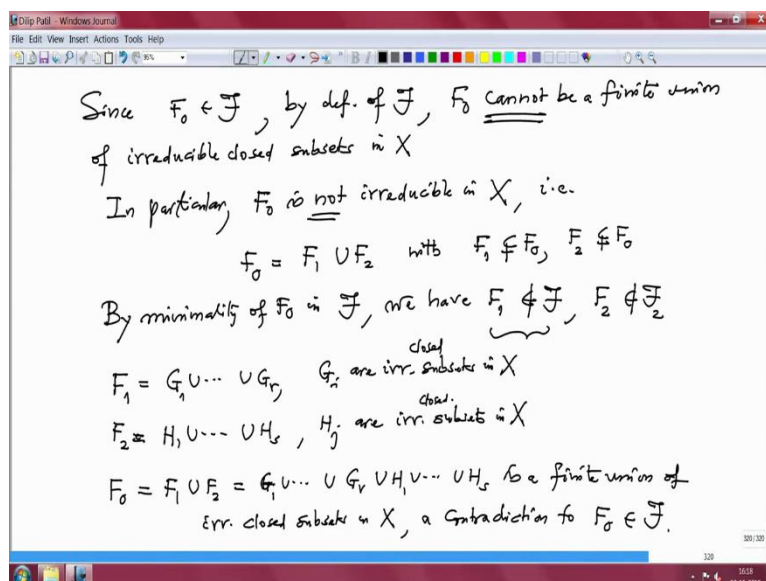 Dilip Patil - Windows Journal
File Edit View Insert Actions Tools Help
Since F₀ ∈ ℱ, by def. of ℱ, F₀ cannot be a finite union
of irreducible closed subsets in X
In particular, F₀ is not irreducible in X, i.e.
F₀ = F₁ ∪ F₂ with F₁ ⊊ F₀, F₂ ⊊ F₀
By minimality of F₀ in ℱ, we have F₁ ∉ ℱ, F₂ ∉ ℱ₂
closed
F₁ = G₁ ∪ ⋯ ∪ Gᵣ, Gᵢ are irr. subsets in X
closed.
F₂ = H₁ ∪ ⋯ ∪ Hₛ, Hⱼ are irr. subset in X
F₀ = F₁ ∪ F₂ = G₁ ∪ ⋯ ∪ Gᵣ ∪ H₁ ∪ ⋯ ∪ Hₛ is a finite union of
irr. closed subsets in X, a contradiction to F₀ ∈ ℱ.
320/320
320
16:18